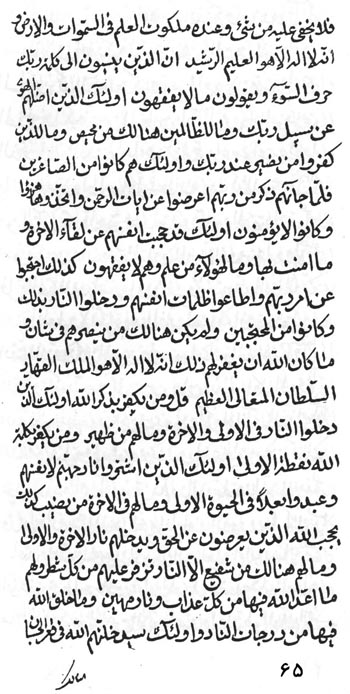 فلا يخفى عليه من شئ و عنده ملكوت العلم فى السموات و الارض و
انه لا اله الا هو العليم الرشيد ان الذين ينسبون الى كلمة ربك
حرف السوء و يقولون ما لا يفقهون اولئك الذين اضلهم الهوى
عن سبيل ربك و ما للظالمين هنالك من محيص و ما للذين
كفروا من نصير عند ربك و اولئك هم كانوا من الصاغرين
فلما جائهم ذكر من ربهم اعرضوا عن ايات الرحمن و اتخذوها هزوا
و كانوا لا يؤمنون اولئك قد حجبت انفسهم عن لقاء الاخرة و
ما امنت بها و ما لهؤلاء من علم و هم لا يفقهون كذلك احتجبوا
عن امر ربهم و اطاعوا ظلمات انفسهم و دخلوا النار بذلك
و كانوا من المحتجبين و لم يكن هنالك من ينصرهم فى شأن و
ما كان الله ان يغفر لهم ذلك انه لا اله الا هو الملك القهار
السلطان المتعالى العظيم قل و من يكفر بذكر الله اولئك الذين
دخلوا النار فى الاولى و الاخرة و ما لهم من ظهير و من يكفر بكلمة
الله نقطة الاولى اولئك الذين اشتروا نار جهنم لانفسهم
و عبدوا فى الحيوة الاولى و ما لهم فى الاخرة من نصيب كذلك
يحجب الله الذين يعرضون عن الحق و يدخلهم نار الاخرة و الاولى
و ما لهم هنالك من شفيع الا النار تزفر عليهم من كل شطر و لهم
ما اعد الله فيها من كل عذاب و نار مهين و ما خلق الله
فيها من دركات النار و اولئك سيدخلهم الله فى قعر النيران
۶۵